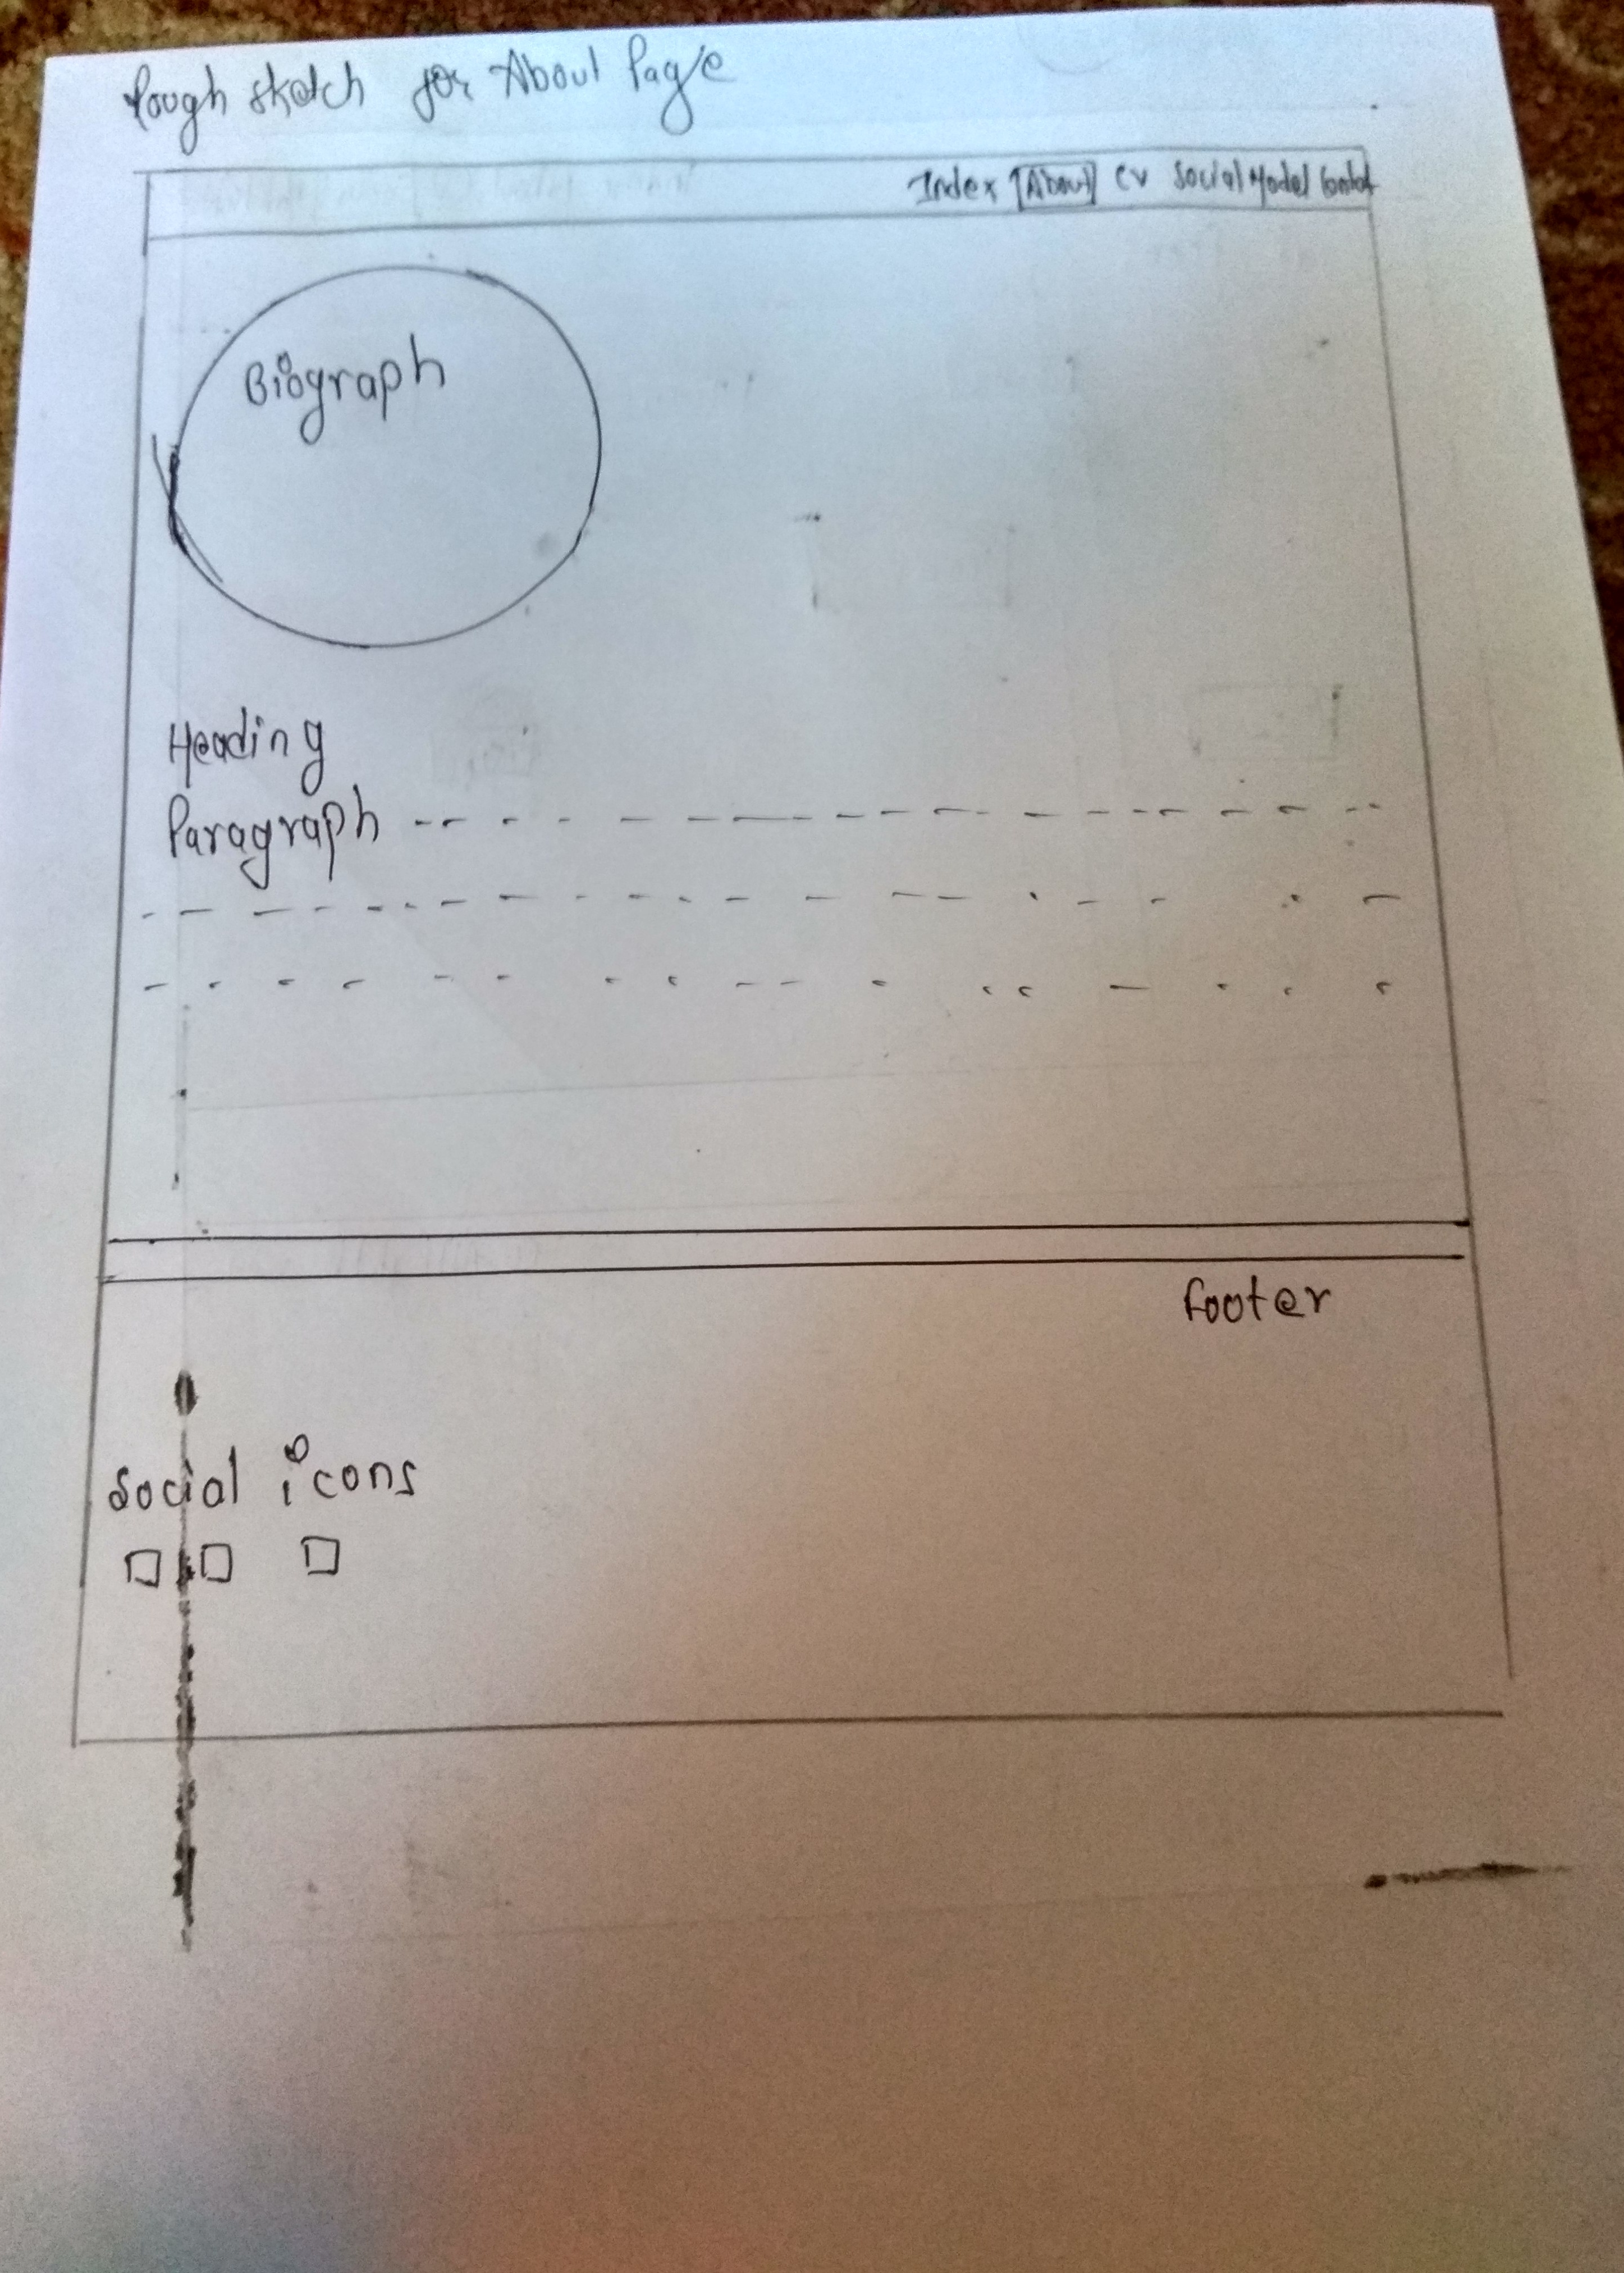 Rough sketch for About Page
Index About CV Social Model Contact
Biograph
Heading
Paragraph
footer
Social icons